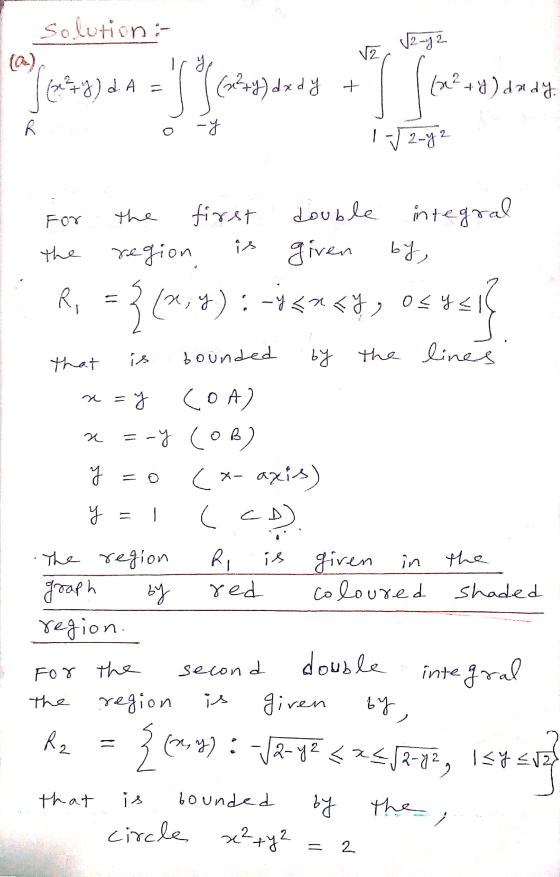 Solution :-
(a) ∫_R (x²+y) dA = ∫_0^1 ∫_{-y}^{y} (x²+y) dx dy + ∫_1^{√2} ∫_{-√2-y²}^{√2-y²} (x²+y) dx dy.
For the first double integral
the region is given by,
R₁ = {(x,y) : -y≤x≤y, 0≤y≤1}.
that is bounded by the lines
x = y (OA)
x = -y (OB)
y = 0 (x-axis)
y = 1 (CD).
The region R₁ is given in the
graph by red coloured shaded
region.
For the second double integral
the region is given by,
R₂ = {(x,y) : -√2-y² ≤ x ≤ √2-y², 1≤y≤√2}
that is bounded by the,
circle x²+y² = 2